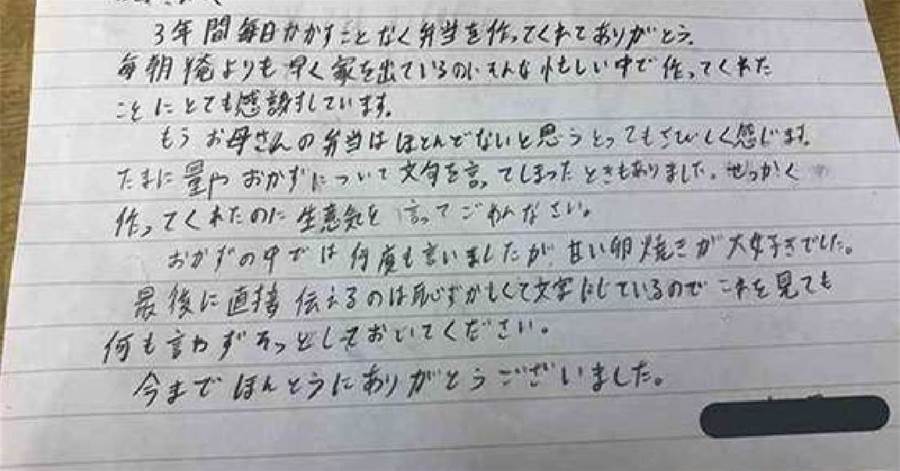 3年間毎日かかすことなく弁当を作ってくれてありがとう。
毎朝俺よりも早く家を出ているのにそんな忙しい中で作ってくれた
ことにとても感謝しています。
もうお母さんの弁当はほとんどないと思うとってもさびしく感じます。
たまに量やおかずについて文句を言ってしまったときもありました。せっかく
作ってくれたのに生意気を言ってごめんなさい。
おかずの中では何度も言いましたが、甘い卵焼きが大好きでした。
最後に直接伝えるのは恥ずかしくて文字にしているのでこれを見ても
何も言わずそっとしておいてください。
今までほんとうにありがとうございました。